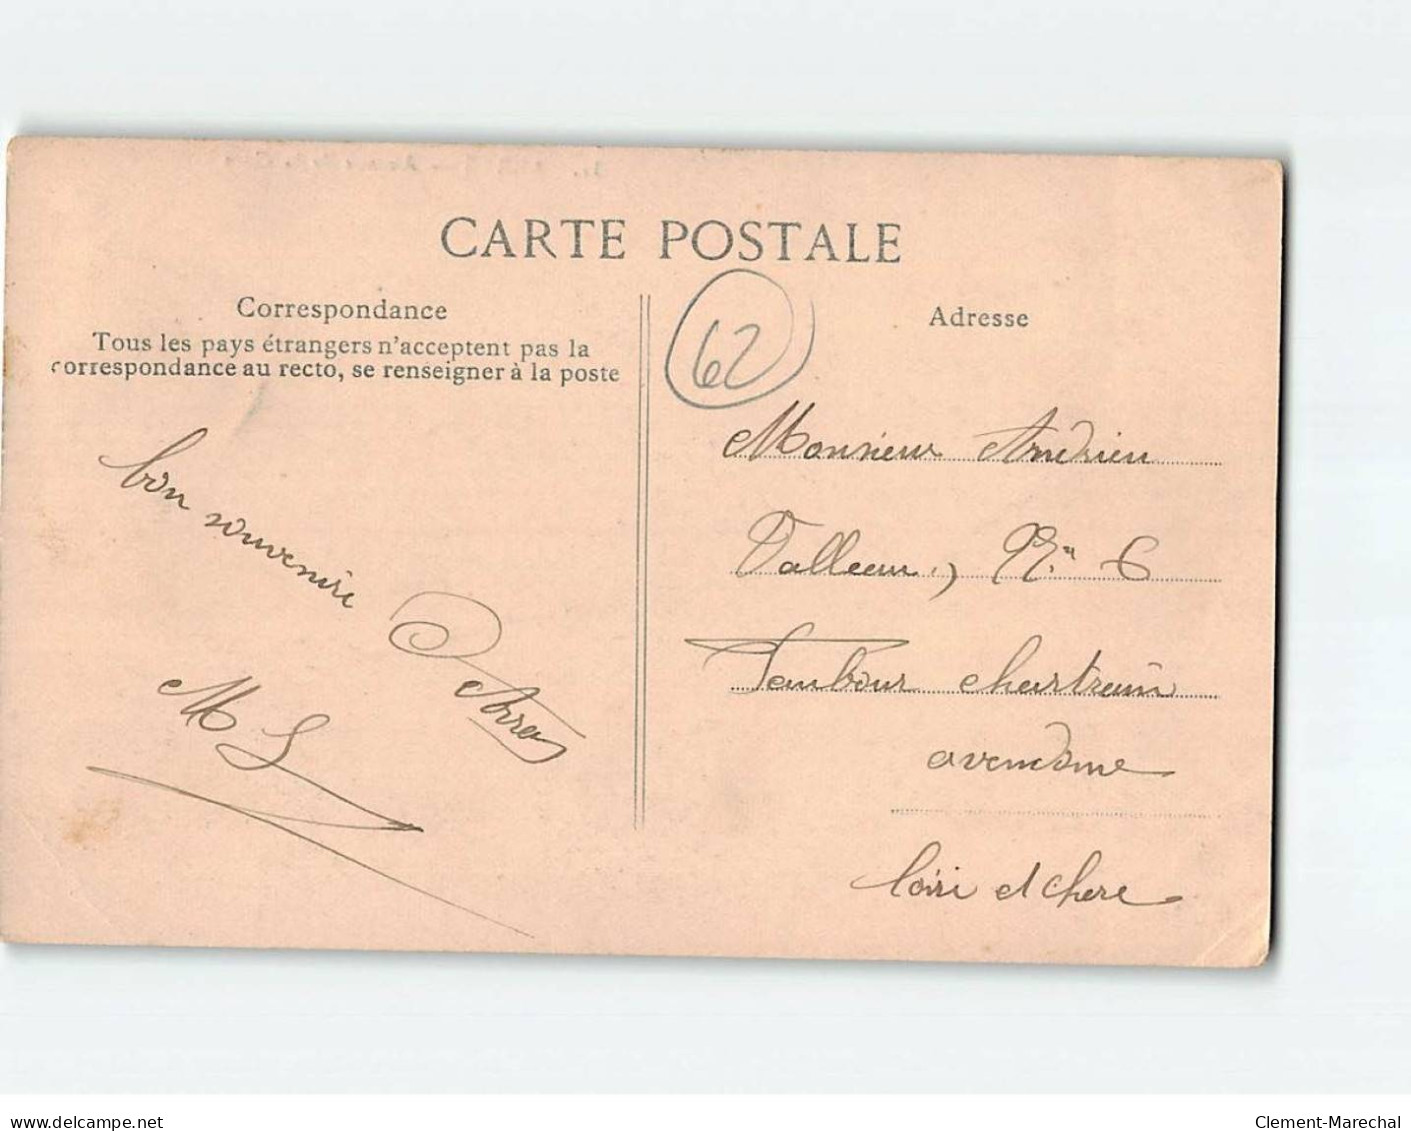 CARTE POSTALE
Correspondance
Tous les pays étrangers n'acceptent pas la
correspondance au recto, se renseigner à la poste
bon souvenir
M S
62
Adresse
Monsieur Andrien
Valleau,
6
Tambour chartrain
avendome
loire et chere
www.delcampe.net
Clement-Marechal